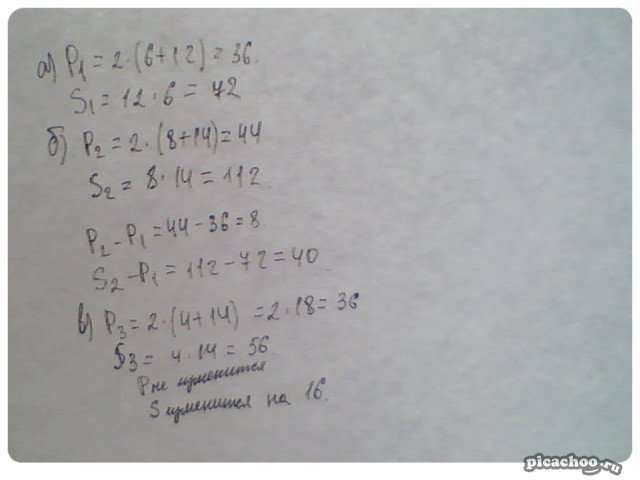 а) P₁ = 2·(6+12) = 36.
S₁ = 12·6 = 72
б) P₂ = 2·(8+14) = 44
S₂ = 8·14 = 112.
P₂ - P₁ = 44 - 36 = 8.
S₂ - P₁ = 112 - 72 = 40.
в) P₃ = 2·(4+14) = 2·18 = 36
S₃ = 4·14 = 56.
P не изменится
S изменится на 16.
picachoo.ru